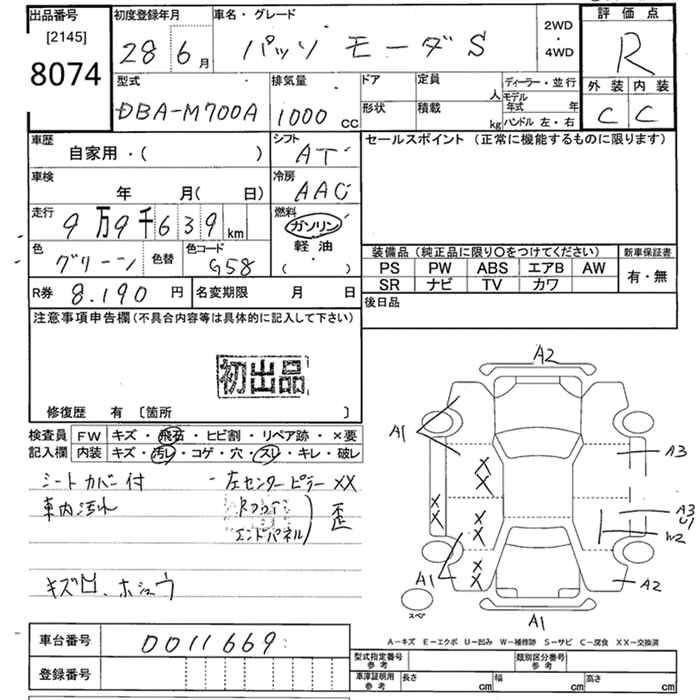 出品番号
[2145]
8074
初度登録年月
28 6月
車名・グレード
パッソ モーダS
2WD
・
4WD
評価点
R
外装 内装
C C
型式
DBA-M700A
排気量
1000 CC
ドア
形状
定員 人
積載 kg
ディーラー・並行
モデル
年式 年
ハンドル 左・右
車歴
自家用・( )
シフト
AT
セールスポイント (正常に機能するものに限ります)
車検
年 月( 日)
冷房
AAC
走行
9万9千639km
燃料
ガソリン
軽油
( ・ )
色
グリーン
色替
色コード
G58
装備品 (純正品に限り〇をつけてください)
新車保証書
PS PW ABS エアB AW
有・無
SR ナビ TV カワ
R券 8.190円
名変期限 月 日
後日品
注意事項申告欄(不具合内容等は具体的に記入して下さい)
初出品
修復歴 有 〔箇所 〕
検査員
記入欄
FW キズ・飛石・ヒビ割・リペア跡・×要
内装 キズ・汚レ・コゲ・穴・スレ・キレ・破レ
シートカバー付
・左センターピラーXX
車内汚れ
エンドパネル) 歪
キズ凹、ホシュウ
A2
A1
A3
XX
A3
U1
W2
A1
A2
A1
スペア
A-キズ E-エクボ U-凹み W-補修跡 S-サビ C-腐食 XX-交換済
車台番号 0011669
登録番号
型式指定番号
参考
類別区分番号
参考
車庫証明用
参考
長さ cm
幅 cm
高さ cm